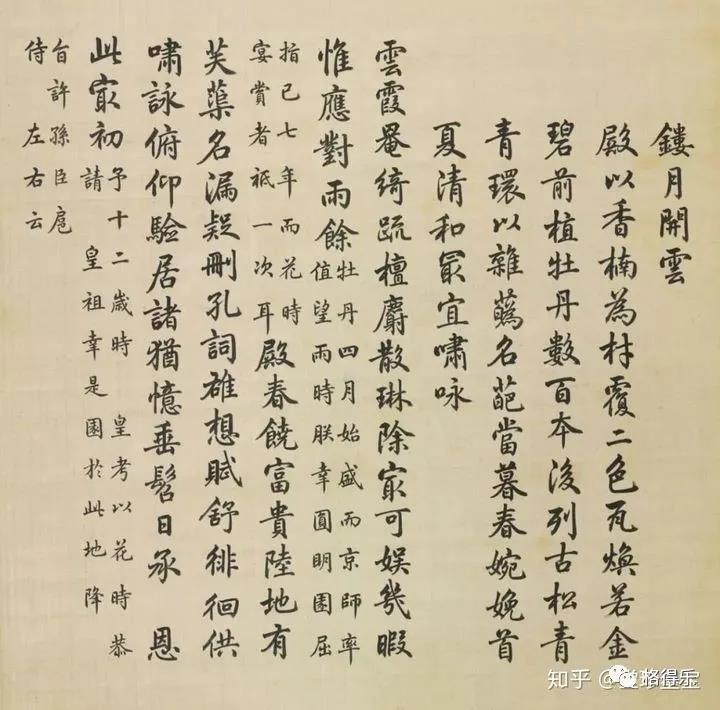 鏤月開雲
殿以香楠為材覆二色瓦煥若金
碧前植牡丹數百本後列古松青
青環以雜蘤名葩當暮春婉娩首
夏清和冣宜嘯咏
雲霞罨綺疏檀麝散琳除冣可娛幾暇
惟應對雨餘牡丹四月始盛而京師率
值望雨時朕幸圓明園屈
指已七年而花時
宴賞者祗一次耳殿春饒富貴陸地有
芙蕖名漏疑刪孔詞雄想賦舒徘徊供
嘯詠俯仰驗居諸猶憶垂髫日承 恩
此冣初予十二歲時 皇考以花時恭
請 皇祖幸是園於此地降
旨許孫臣扈
侍左右云
知乎 @
格得乐